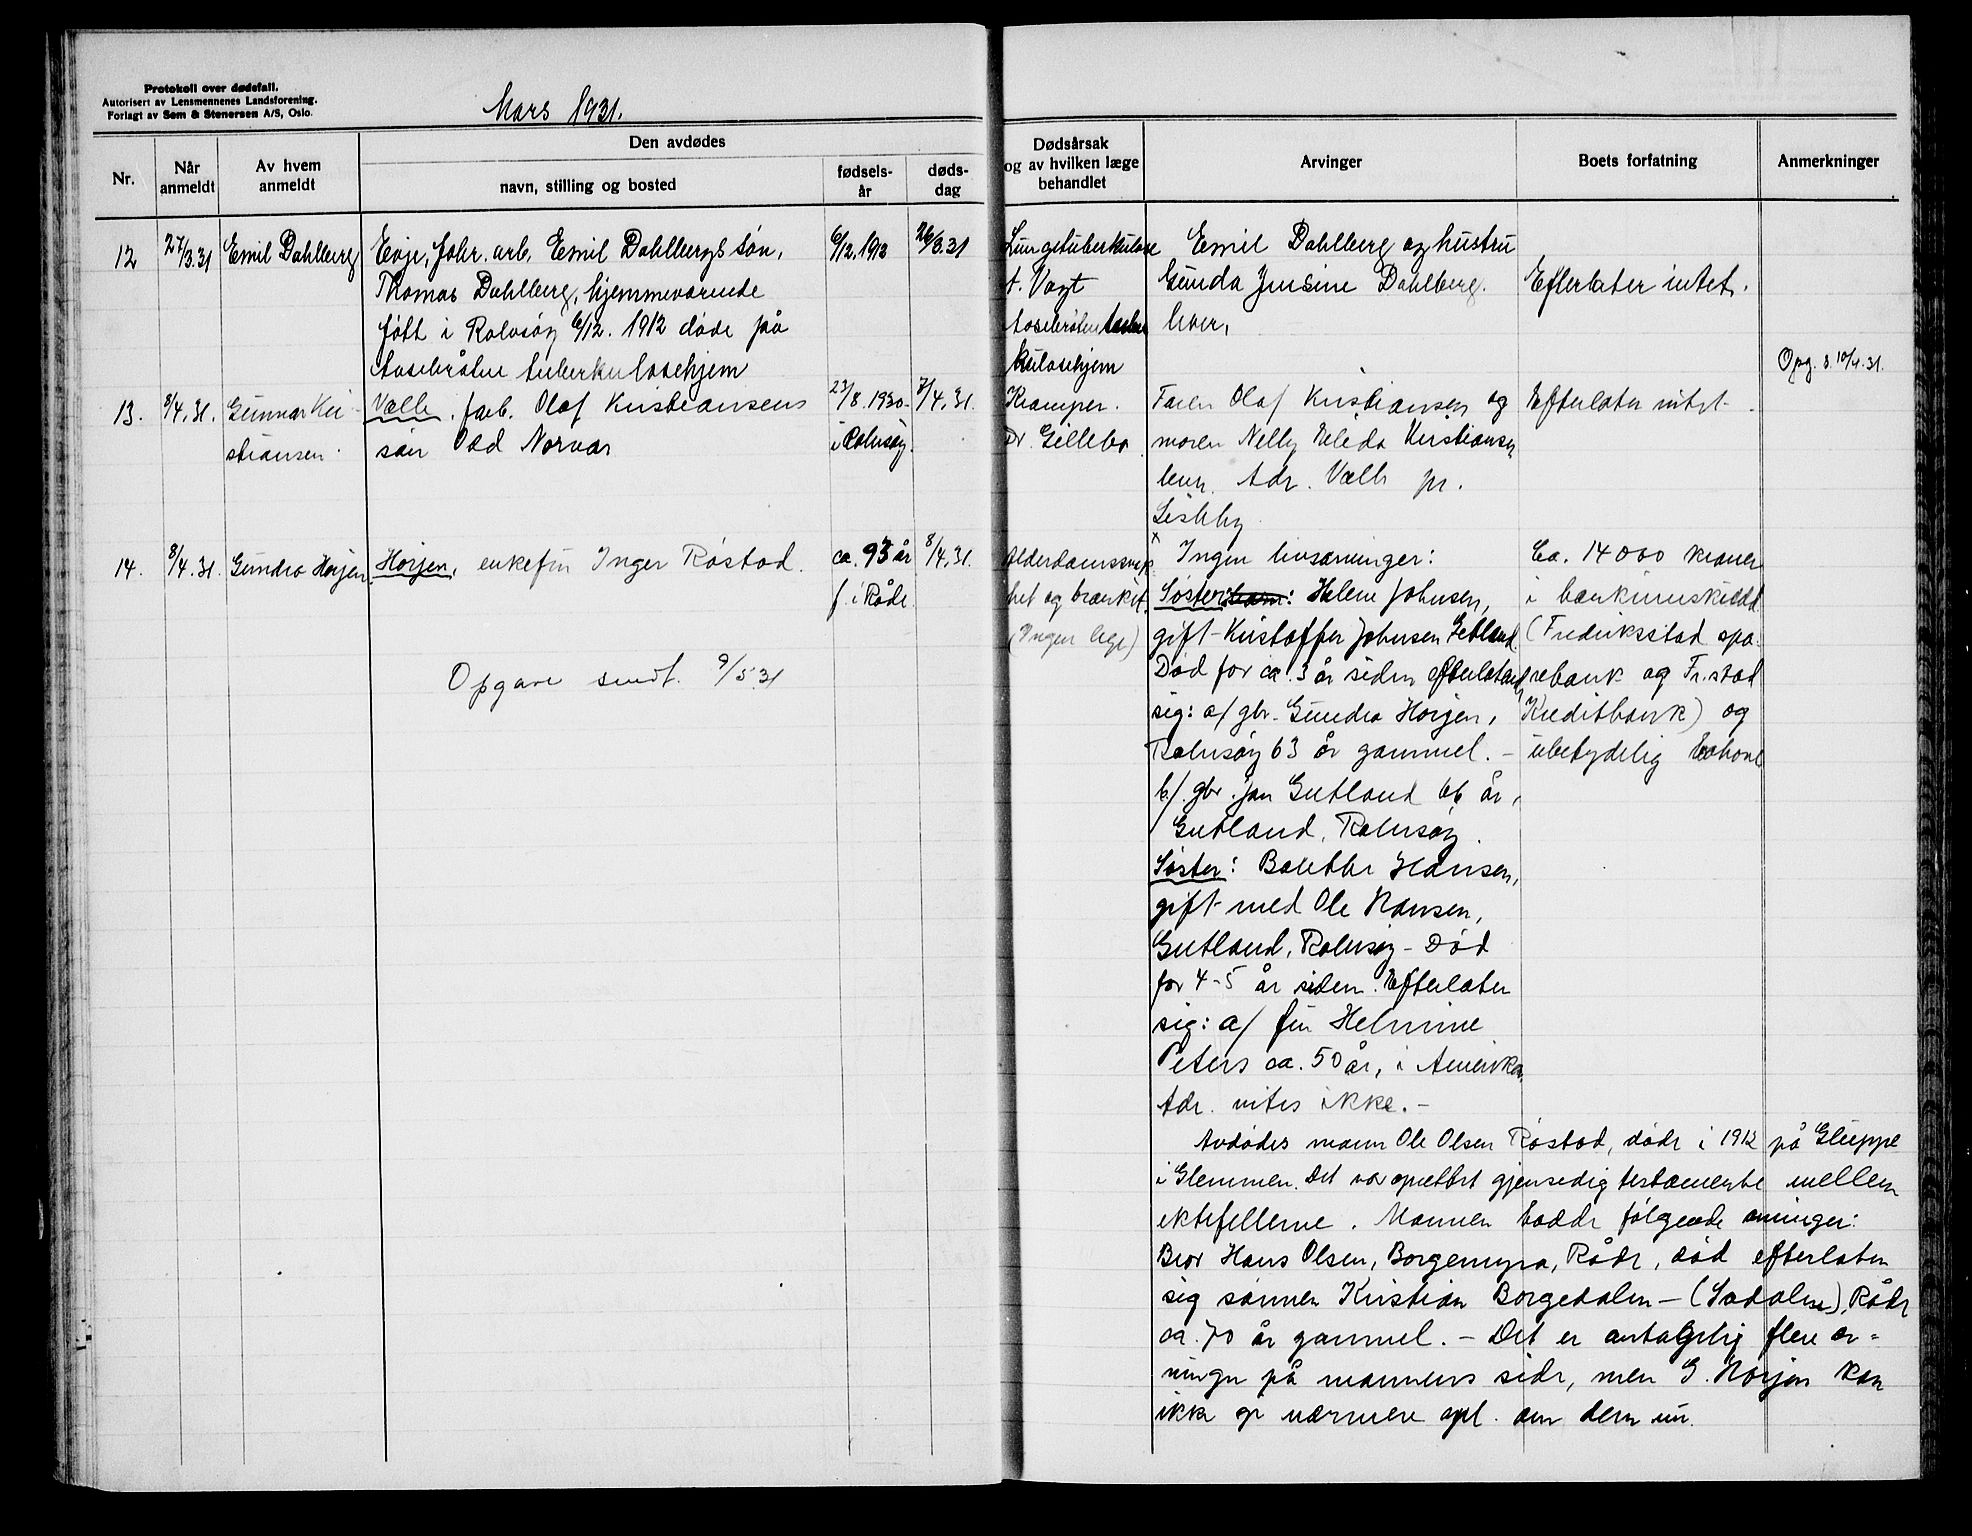 Protokoll over dødsfall.
Autorisert av Lensmennenes Landsforening.
Forlagt av Sem & Stenersen A/S, Oslo.
Mars 1931.
Nr.
Når anmeldt
Av hvem anmeldt
Den avdødes
navn, stilling og bosted
fødselsår
dødsdag
Dødsårsak og av hvilken læge behandlet
Arvinger
Boets forfatning
Anmerkninger
12
27/3.31
Emil Dahlberg
Evje, fabr. arb. Emil Dahlbergs søn,
Thomas Dahlberg, hjemmeværende
født i Rolvsøy 6/12. 1912 døde på
tuberkulosehjem
6/12.1912
26/3.31
Lungetuberkulose
kulosehjem
Emil Dahlberg og hustru
Gunda Jensine Dahlberg.
lever,
Efterlater intet.
Opg. s. 10/4.31.
13.
8/4.31.
Gunnar Kri-
stiansen.
Valle, farb. Olaf Kristiansens
søn Odd Norvar
23/8.1930
i Rolvsøy.
7/4.31.
Kramper.
Dr. Gillebo
Faren Olaf Kristiansen og
moren Nelly Kristiansen
lever. Adr. Valle pr.
Lisleby
Efterlater intet.
14.
8/4.31.
Gundro Horjen.
Horjen, enkefru Inger Røstad.
ca. 93 år
f. i Råde
8/4.31.
Alderdomssvak-
het og
(Ingen lege)
x Ingen livsarvinger:
Søster: Helene Johnsen,
gift Kristoffer Johnsen Gutland.
Død for ca. 3 år siden efterlatend
sig: a/ gbr. Gundro Horjen,
Rolvsøy 63 år gammel. –
b/. gbr. Jan Gutland 66 år,
Gutland, Rolvsøy.
Søster: Bolette Hansen,
gift med Ole Hansen,
Gutland, Rolvsøy – Død
for 4-5 år siden. Efterlater
sig: a/ fru Helmine
Peters ca. 50 år, i Amerika.
Adr. vites ikke. –
Ca. 14000 kroner
i bankinnskudd
(Fredriksstad spa-
rebank og Fr.stad
Kreditbank) og
ubetydelig løsøre
Opgave sendt. 9/5 31
Avdødes mann Ole Olsen Røstad, døde i 1912 på Gluppe
i Glemmen. Det var oprettet gjensidig testamente mellem
ektefellerne. Mannen hadde følgende arvinger:
Bror Hans Olsen, Borgemyra, Råde, død efterlaten
sig sønnen Kristian Borgedalen – (Sodalen), Råde
ca. 70 år gammel. – Det er antagelig flere ar-
vinger på mannens side, men G. Horjen kan
ikke gi nærmere opl. om dem nu.